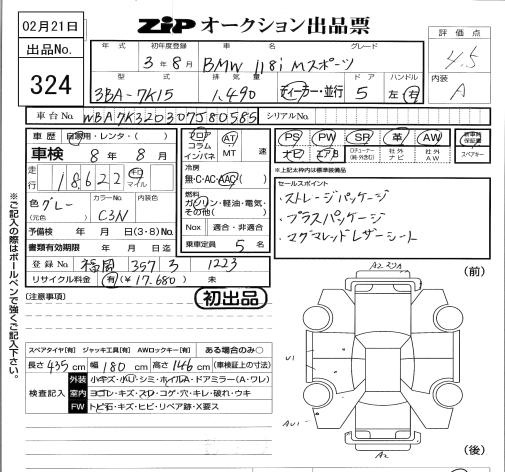 02月21日
ZIP オークション出品票
評価点
4.5
出品No.
324
年式 初年度登録 車名 グレード
3年8月 BMW 118i Mスポーツ
型式 排気量 ドア ハンドル
3BA-7K15 1,490 ディーラー・並行 5 左・右
内装
A
車台No. WBA7K320307J80585 シリアルNo.
車歴 自家用・レンタ・( )
車検 8年8月
走行 18,622 キロ マイル
色 グレー カラーNo. 内装色
(元色) C3N
予備検 年 月 日(3・8)No.
書類有効期限 年 月 日迄
登録No. 福岡 357 す 1223
リサイクル料金 有(¥17,680) 未
フロア コラム インパネ AT MT 速
冷房 無・C・AC・AAC
燃料 ガソリン・軽油・電気・その他( )
Nox 適合・非適合
乗車定員 5 名
PS PW SP 革 AW 新車時保証書
ナビ エアB ロデューナー(純・外含む) 社外ナビ 社外AW スペアキー
※上記太枠内は標準装備品
セールスポイント
・ストレージパッケージ
・プラスパッケージ
・マグマレッドレザーシート
(注意事項)
初出品
※ご記入の際はボールペンで強くご記入下さい。
スペアタイヤ[有] ジャッキ工具[有] AWロックキー[有] ある場合のみ○
長さ 435 cm 幅 180 cm 高さ 146 cm (車検証上の寸法)
検査記入
外装 小キズ・小U・シミ・ホイルA・ドアミラー(A・ワレ)
室内 ヨゴレ・キズ・スレ・コゲ・穴・キレ・破れ・ウキ
FW トビ石・キズ・ヒビ・リペア跡・X要ス
(前)
A2 スリ
U1
AU1
A2
(後)